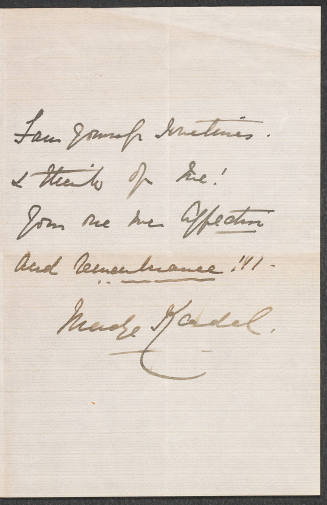 yourself sometimes.
& think of me!
Yours affection
and remembrance!!!
Madge Kendal.